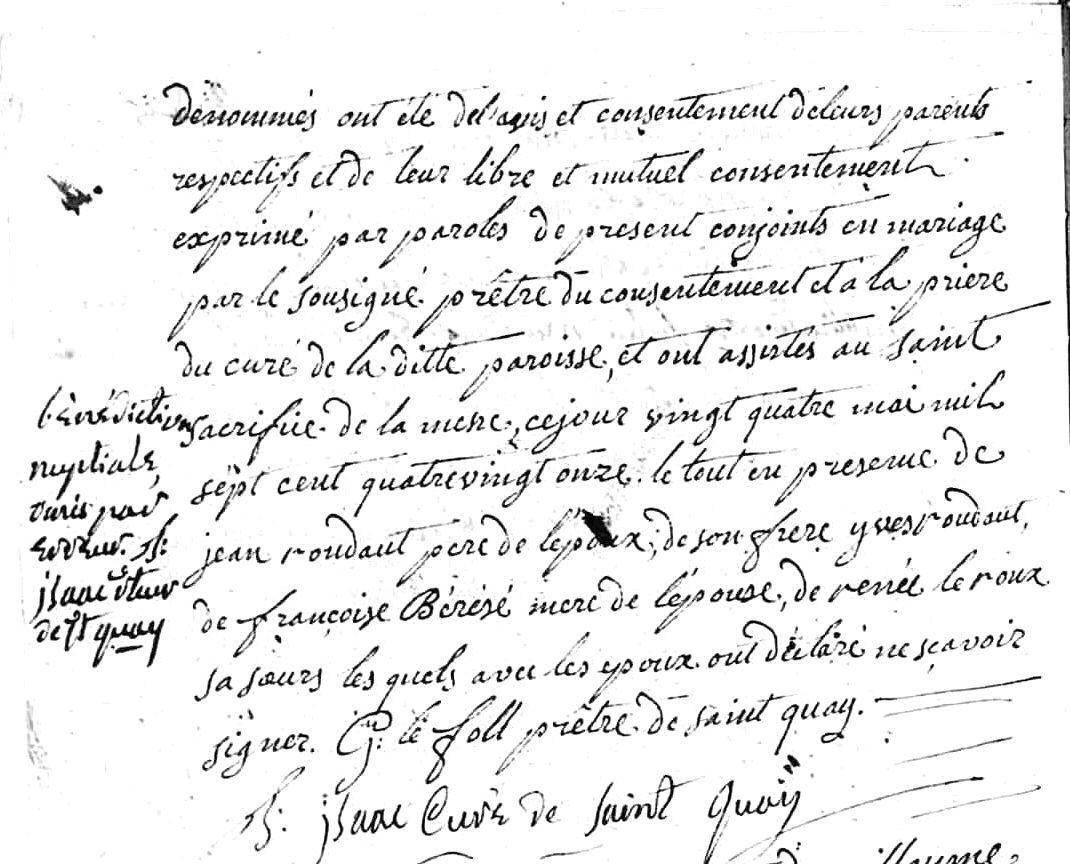 denommés ont été del'avis et consentement deleurs parents
respectifs et de leur libre et mutuel consentement
exprimé par paroles de present conjoints en mariage
par le sousigné prêtre du consentement et a la priere
du curé de la ditte paroisse, et ont assistés au saint
sacrifice de la messe, cejour vingt quatre mai mil
sept cent quatrevingt onze. le tout en presence de
jean roudaut pere de l'époux, de son frere yves roudaut,
de françoise Bérésé mere de l'épouse, de renée le roux
sa sœurs les quels avec les epoux ont déclaré ne sçavoir
signer. G: le foll prêtre de saint quay.
isaac Curé de saint Quay
bénédiction
nuptiale,
par
erreur.
isaac
de st quay